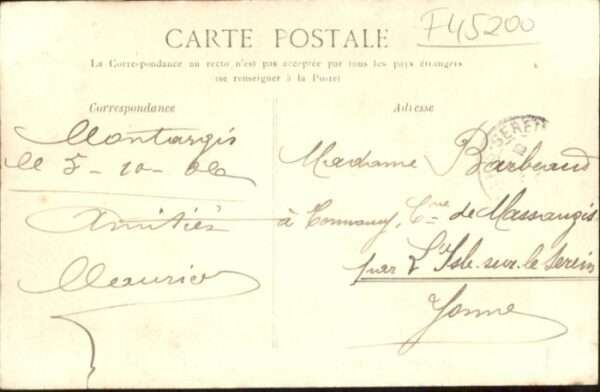 F45200
CARTE POSTALE
La Correspondance au recto n'est pas acceptée par tous les pays étrangers
(se renseigner à la Poste)
Correspondance
Adresse
Montargis
le 5-10-06
Amitiés
Maurice
SEREIN
Madame Barbeaud
à Tormancy, Cne de Massangis
par L'Isle-sur-le Serein
Yonne